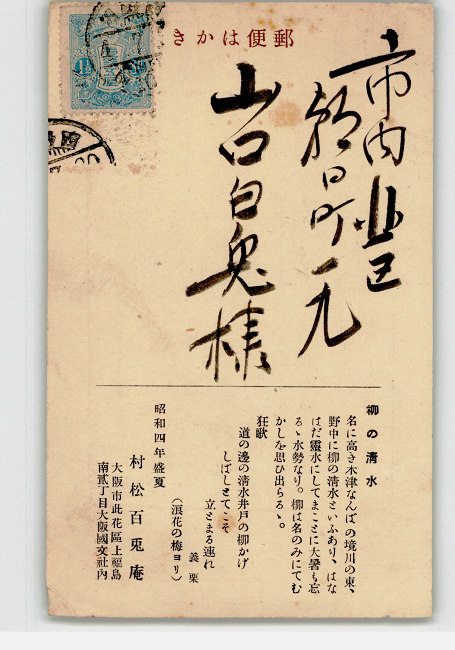 郵便はかき
市内
朝日町一ノ
山口白兎様
柳の清水
名に高き木津なんばの境川の東、
野中に柳の清水といふあり、はな
はだ靈水にしてまことに大暑も忘
るゝ水勢なり。柳は名のみにてむ
かしを思ひ出らるゝ。
狂歌
道の邊の清水井戸の柳かげ
しばしとてこそ
立とまる連れ
義栗
(浪花の梅ヨリ)
昭和四年盛夏
村松百兎庵
大阪市此花區上福島
南貳丁目大阪國文社內